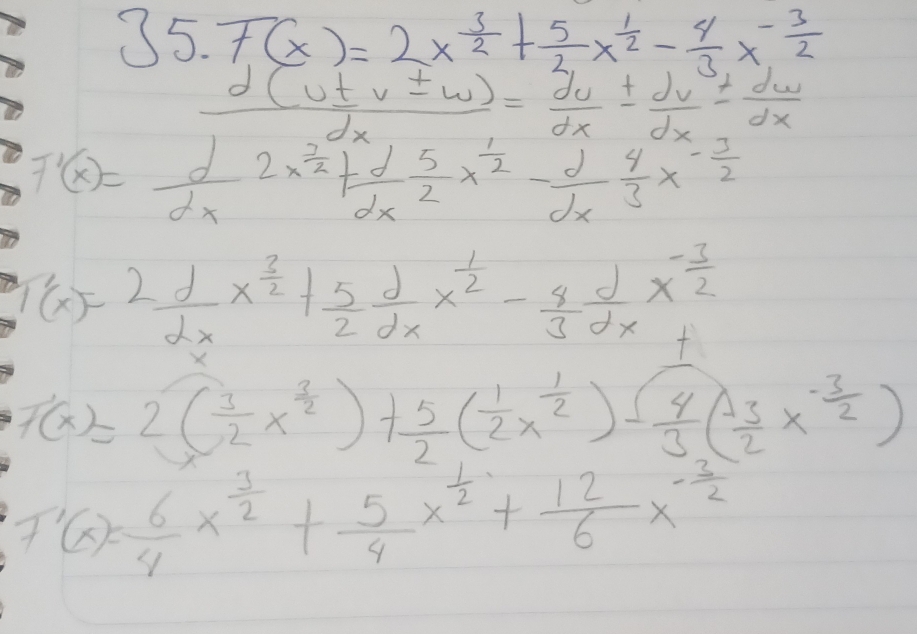 35. F(x) = 2x^{3/2} + 5/2 x^{1/2} - 4/3 x^{-3/2}
d(u ± v ± w)/dx = du/dx ± dv/dx ± dw/dx
F'(x) = d/dx 2x^{3/2} + d/dx 5/2 x^{1/2} - d/dx 4/3 x^{-3/2}
F'(x) = 2 d/dx x^{3/2} + 5/2 d/dx x^{1/2} - 4/3 d/dx x^{-3/2}
x +
F'(x) = 2(3/2 x^{3/2}) + 5/2 (1/2 x^{1/2}) - 4/3 (-3/2 x^{-3/2})
x
F'(x) = 6/4 x^{3/2} + 5/4 x^{1/2} + 12/6 x^{-3/2}